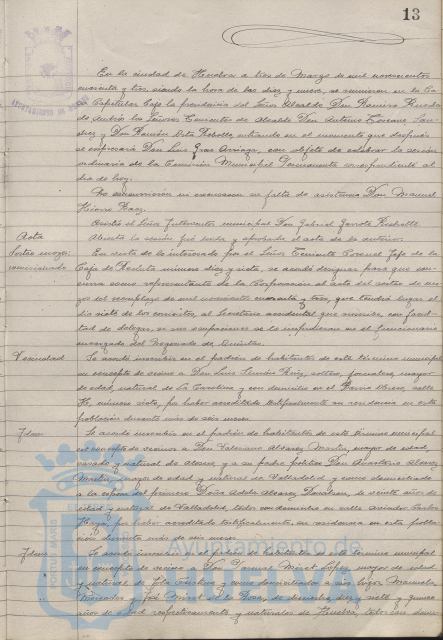 13
En la ciudad de Huelva a tres de Marzo de mil novecientos
cuarenta y tres, siendo la hora de las diez y nueve, se reunieron en la Ca-
sa Capitular bajo la presidencia del Señor Alcalde Don Ramiro
los Señores Tenientes de Alcalde Don Antonio
y Don Ramón entrando en el momento que después
se expresará Don Luis con objeto de celebrar la sesión
ordinaria de la Comisión Municipal Permanente correspondiente al
día de hoy.
No concurrieron ni excusaron su falta de asistencia Don Manuel
Asistió el Señor Interventor municipal Don Gabriel
Acta
Abierta la sesión fué leída y aprobada el acta de la anterior.
En vista de lo interesado por el Señor Teniente Coronel Jefe de la
comisionado
Caja de Recluta número diez y siete, se acordó designar para que con-
curra como representante de la Corporación al acta del sorteo de mo-
zos del reemplazo de mil novecientos cuarenta y tres, que tendrá lugar el
día siete de los corrientes, al Secretario accidental que suscribe, con facul-
tad de delegar, si sus ocupaciones se lo impidieran en el funcionario
encargado del Negociado de Quintas.
Vecindad
Se acordó inscribir en el padrón de habitantes de este término municipal
en concepto de vecino a Don Luis Ruiz, soltero, mayor
de edad, natural de La Carolina y con domicilio en el Barrio Obrero, calle
H, número siete, por haber acreditado testificalmente su residencia en esta
población durante más de seis meses.
Idem
Se acordó inscribir en el padrón de habitantes de este término municipal
en concepto de vecinos a Don Valeriano Alvarez Martin, mayor de edad,
casado y natural de y a su padre político Don Anastasio Alvarez
Martin, mayor de edad y natural de Valladolid y como domiciliado
a la esposa del primero Doña Adela Alvarez de veinte años de
edad y natural de Valladolid, todos con domicilio en calle Aviador Carlos
Haya, por haber acreditado testificalmente su residencia en esta pobla-
ción durante más de seis meses.
Idem
Se acordó inscribir en el padrón de habitantes de este término municipal
en concepto de vecino a Don Manuel López, mayor de edad
y natural de Isla Cristina y como domiciliados a sus hijos Manuela
y José de diez y siete y quince
años de edad respectivamente y naturales de Huelva, todos con domi-
Ayuntamiento de